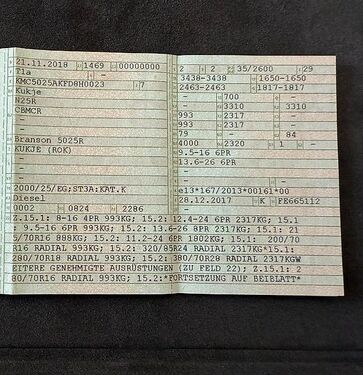 21.11.2018 1469 00000000 2 2 35/2600 29
T1a - 3438-3438 1650-1650
KMC5025AKFD8H0023 7 2463-2463 1817-1817
Kukje - 700 - -
N25R - 3310 3310
CBMCR 993 2317 -
- 993 2317 -
- - 79 84
Branson 5025R 4000 2320 1 -
KUKJE (ROK) 9.5-16 6PR
- 13.6-26 6PR
-
- -
2000/25/EG;ST3A:KAT.K e13*167/2013*00161*00
Diesel 28.12.2017 K FE665112
0002 0824 2286
Z.15.1: 8-16 4PR 993KG; 15.2: 12.4-24 6PR 2317KG; 15.1
: 9.5-16 6PR 993KG; 15.2: 13.6-26 8PR; 15.1: 21
5/70R16 888KG; 15.2: 11.2-24 6PR 1802KG; 15.1: 200/70
R16 RADIAL 993KG; 15.2: 320/85R24 RADIAL 2317KG*15.1:
280/70R18 RADIAL 993KG; 15.2: 380/70R28 RADIAL 2317KGW
EITERE GENEHMIGTE AUSRÜSTUNGEN (ZU FELD 22); Z.15.1: 2
80/70R16 RADIAL 993KG; 15.2:*FORTSETZUNG AUF BEIBLATT*